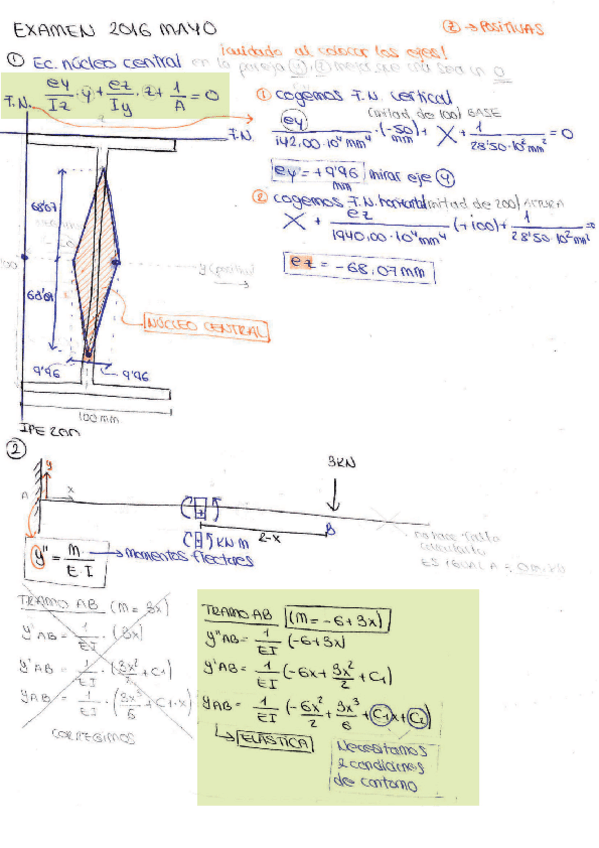 EXAMEN 2016 MAYO
② → POSITIVAS
① Ec. núcleo central en la pareja
¡cuidado al colocar los ejes!
ey/Iz · y + ez/Iy · z + 1/A = 0
① cogemos F.N. vertical
mitad de 100 / BASE
F.N.
F.N.
ey/142,00·10⁴mm⁴ · (-50 mm) + X + 1/28'50·10²mm² = 0
ey = +9'96 mm mirar eje y
② cogemos F.N. horizontal mitad de 200
X + ez/1940,00·10⁴mm⁴ (+100) + 1/28'50·10²mm² =0
ez = -68,07 mm
68'07
y (positiva)
68'07
NÚCLEO CENTRAL
9'96
9'96
100 mm
IPE 200
②
y
3KN
A
x
B
2-x
KN m
no hace falta
calcularlo
ES IGUAL A
y" = M/E·I → momentos flectores
TRAMO AB (M = 3x)
y"AB = 1/EI · (3x)
y'AB = 1/EI · (3x²/2 + C1)
yAB = 1/EI · (3x³/6 + C1·x)
CORREGIMOS
TRAMO AB (M = -6+3x)
y"AB = 1/EI (-6+3x)
y'AB = 1/EI (-6x + 3x²/2 + C1)
yAB = 1/EI (-6x²/2 + 3x³/6 + C1x + C2)
↳ ELÁSTICA
Necesitamos
2 condiciones
de contorno